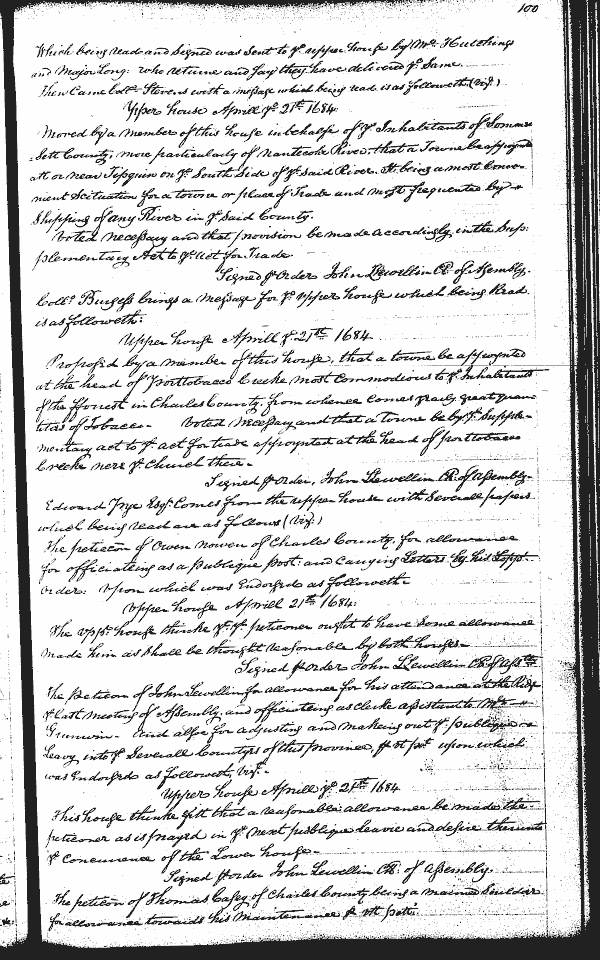 100
Which being read and Signed was sent to yͤ upper house by Mr. Hutchings
and Major Long: who returne and say they have delivered yͤ Same.
Then Came Collo Stevens with a message which being read is as followeth (viz:)
Upper house Aprill yͤ 21th 1684
Moved by a member of this house in behalfe of yͤ Inhabitants of Somer=
=sett County, more particularly of Nanticoke River, that a Towne be appoynted
att or near Tipquin on yͤ South Side of yͤ Said River. It being a most Conve=
ment Scituation for a towne or place of Trade and most frequented by
Shipping of any River in yͤ Said County.
Voted necessary and that provision be made accordingly in the Sup:
plementary Act to yͤ Act for Trade
Signed ꝑ order John Llewellin Cl̃. of Assembly.
Collo. Burgess brings a Message for yͤ upper house which being Read
is as followeth:
Upper house Aprill yͤ 21th 1684.
Proposed by a member of this house, that a towne be appoynted
at the head of Porttobacco Creeke most commodious to yͤ Inhabitants
of the fforrest in Charles County, from whence comes yearly great quan
tities of Tobacco. Voted Necessary and that a towne be by yͤ Supple=
mentary act to yͤ act for trade appoynted at the head of porttobacco
Creeke nere yͤ Church there.
Signed ꝑ order, John Llewellin Cl̃. of Assembly.
Edward Inge Esqr. Comes from the upper house with Severall papers
which being read are as follows (viz:)
The peticon of Owen Nowen of Charles County, for allowance
for officiating as a publique Post: and Carrying Letters by his Lopps.
order: upon which was Endorsed as followeth.
Upper house Aprill 21th 1684.
The uppr. house thinke yͭ yͤ peticoner ought to have Some allowance
made him as shall be thought reasonable by both houses.
Signed ꝑ order John Llewellin Cl̃. of Assbly
The peticon of John Llewellin for allowance for his attendance at the
last meeting of Assembly, and officiating as clerke assistant to Mr.
Grunwin. And also for adjusting and makeing out yͤ publique
Leavy into yͤ Severall Countys of this province, upon which
was Endorsed as followeth, viz:
Upper house Aprill yͤ 21th 1684
This house thinke fitt that a reasonable allowance be made the
peticoner as is prayed in yͤ next publique leavie and desire thereunto
yͤ Concurrence of the Lower house.
Signed ꝑ order John Llewellin Cl̃. of Assembly.
The peticon of Thomas Casey of Charles County being a maimed Souldier
for allowance towards his Maintenance